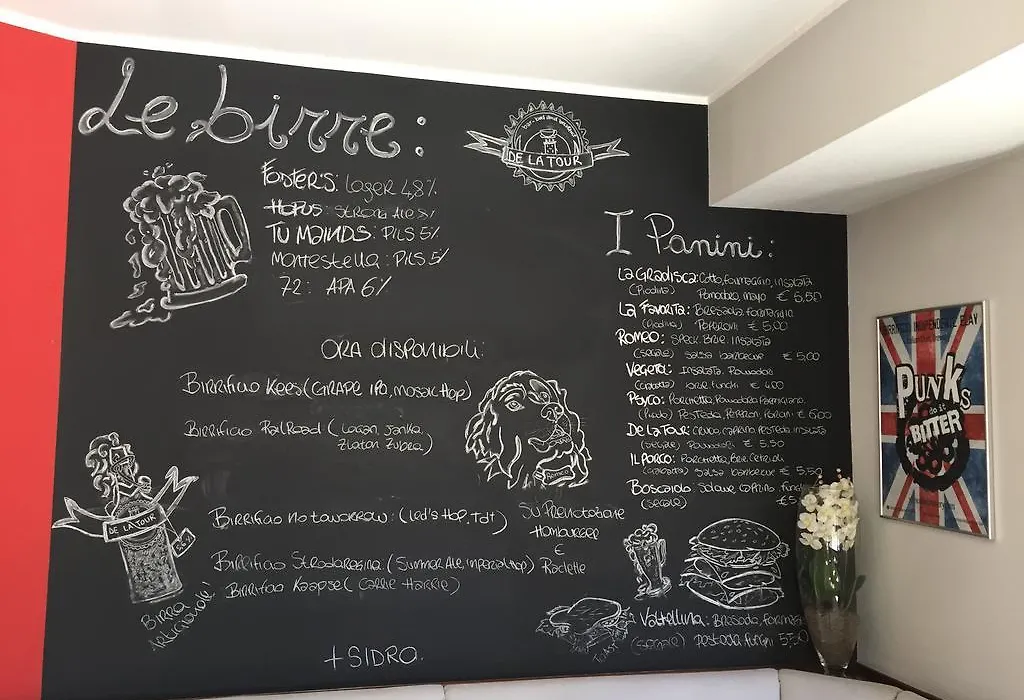 Le birre:
DE LA TOUR
FOSTER'S: LAGER 4,8%
HOPUS: STRONG ALE 8%
TU MAINDS: PILS 5%
MONTESTELLA: PILS 5%
72: APA 6%
ORA DISPONIBILI:
BIRRIFICIO KEES (GRAPE IPA, MOSAIC HOP)
BIRRIFICIO RAILROAD (LOGAN, JANKA,
ZLATAN ZUBRA)
BIRRIFICIO NO TOMORROW: (LED'S HOP, TDT)
BIRRIFICIO STRADAREGINA (SUMMER ALE, IMPERIAL HOP)
BIRRIFICIO KAAPSE (CARRIE HARRIE)
+ SIDRO.
DE LA TOUR
BIRRA
ARTIGIANALE
SU PRENOTAZIONE
HAMBURGER
E
RACLETTE
I Panini:
LA GRADISCA: COTTO, FORMAGGIO, INSALATA
(PIADINA) POMODORO, MAYO € 5,50
LA FAVORITA: BRESAOLA, FORMAGGIO
(PIADINA) PEPERONI € 5,00
ROMEO: SPECK, BRIE, INSALATA
(SEGALE) SALSA BARBECUE € 5,00
VEGETA: INSALATA, POMODORI
(CIABATTA) BRIE, FUNGHI € 4,00
PSYCO: PORCHETTA, POMODORO, PARMIGIANO,
PESTEDA, PEPERONI, € 6,00
DE LA TOUR: CRUDO, CAPRINO, PESTEDA, INSALATA
(SEGALE) POMODORI € 5,50
IL PORCO: PORCHETTA, BRIE, CETRIOLI
(CIABATTA) SALSA BARBECUE € 5,50
BOSCAIOLO: SALAME, CAPRINO, FUNGHI
(SEGALE)
TOAST
VALTELLINA: BRESAOLA, FORMAGGIO
(SEGALE) PESTEDA FUNGHI 5,50
PUNKS
do it
BITTER